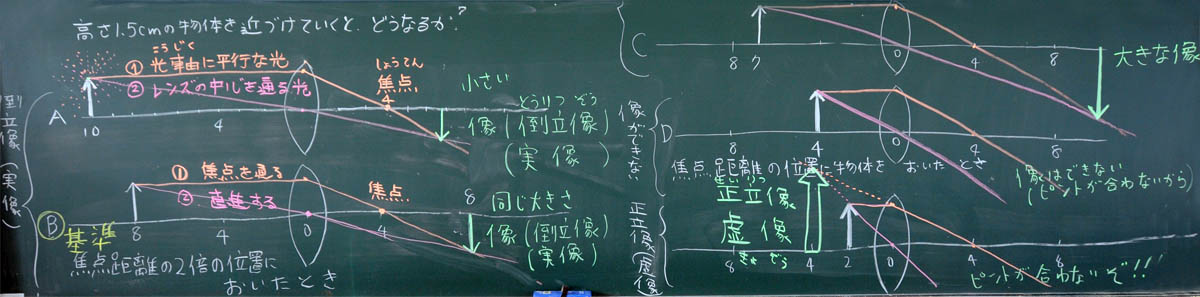 高さ1.5cmの物体を近づけていくと、どうなるか?
こうじく
①光軸に平行な光
②レンズの中心を通る光
しょうてん
焦点
4
小さい
とうりつ ぞう
像(倒立像)
(実像)
A
10
4
倒立像(実像)
①焦点を通る
②直進する
焦点
8 同じ大きさ
像(倒立像)
(実像)
B
基準
8
4
0
4
焦点距離の2倍の位置に
おいたとき
C
8
7
0
4
8
大きな像
像ができない
D
8
4
0
4
8
焦点距離の位置に物体を おいたとき
像はできない
(ピントが合わないから)
正立像(虚像)
せいりつ
正立像
虚像
きょ ぞう
8
4
2
0
4
8
ピントが合わないぞ!!